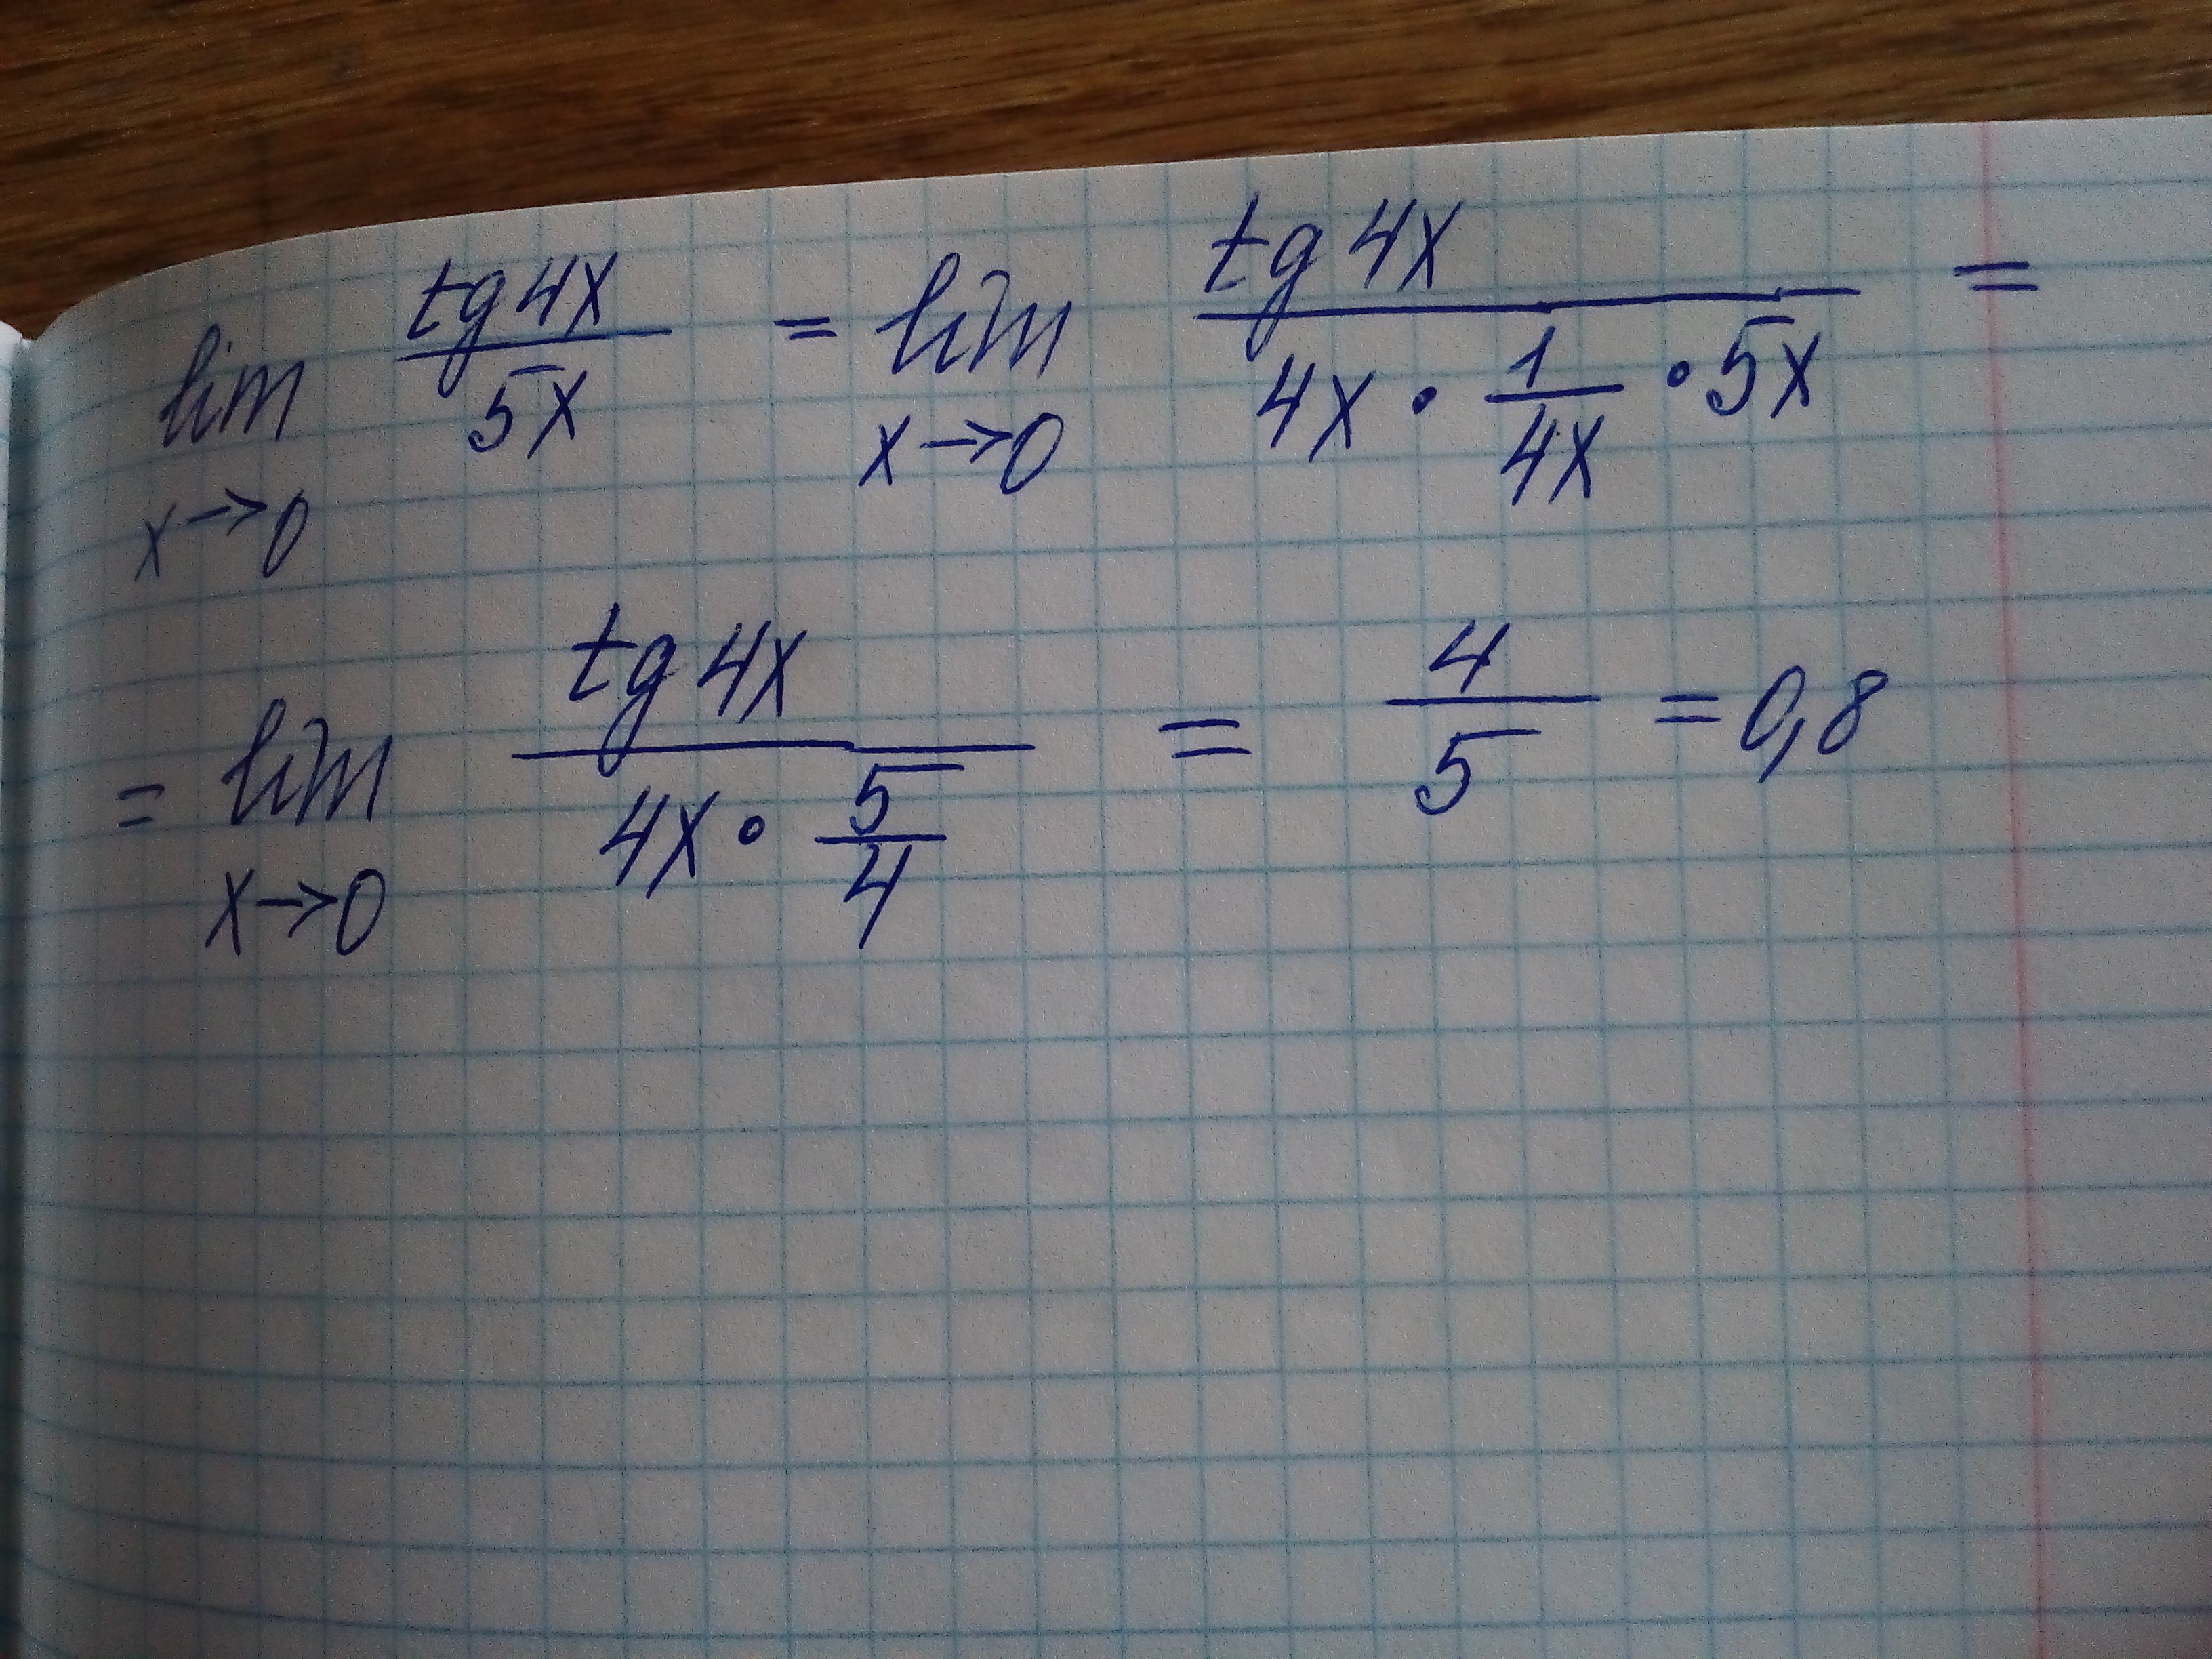 lim x→0 tg4x/5x = lim x→0 tg4x/(4x · 1/4x · 5x) =
= lim x→0 tg4x/(4x · 5/4) = 4/5 = 0,8